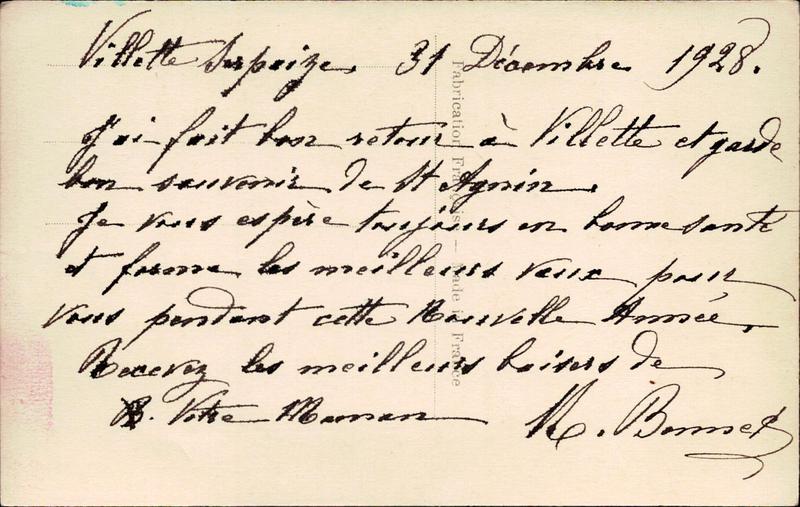 Villette Serpaize. 31 Décembre 1928.
J'ai fait bon retour à Villette et garde
bon souvenir de St Agnin.
Je vous espère toujours en bonne santé
et forme les meilleurs vœux pour
vous pendant cette Nouvelle Année.
Recevez les meilleurs baisers de
Votre Maman M. Bonnet
Fabrication Française — Made in France